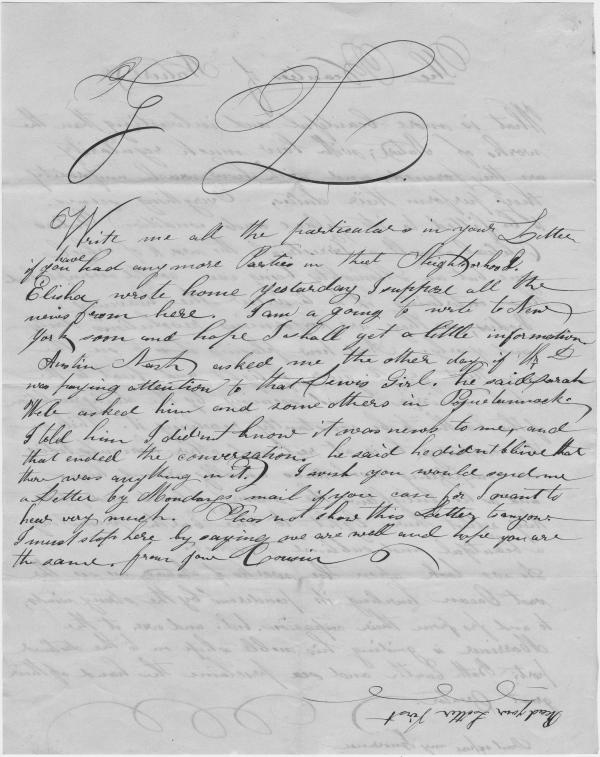 Write me all the particulars in your Letter
if you have had any more Parties in that Neighborhood.
Elisha wrote home yesterday I suppose all the
news from here. I am a going to write to New
York soon and hope I shall get a little information
Austin Nash asked me the other day if Wm D
was paying attention to that Lewis Girl. he said Sarah
asked him and some others in Poquetannock
I told him I didnt know it was news to me, and
that ended the conversation, he said he didnt blive that
there was anything in it. I wish you would send me
a Letter by Mondays mail if you can for I want to
hear very much. Pleas not show this Letter to anyone
I must stop here by saying we are well and hope you are
the same. from your Cousin
Read your Letter First